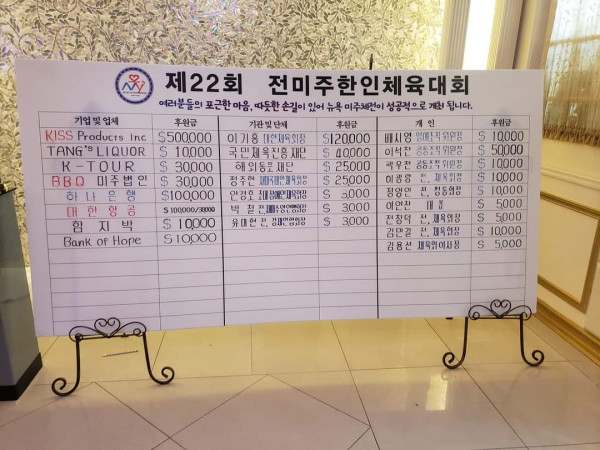 제22회 전미주한인체육대회
여러분들의 포근한 마음, 따뜻한 손길이 있어 뉴욕 미주체전이 성공적으로 개최 됩니다.
기업 및 업체 후원금 기관 및 단체 후원금 개 인 후원금
KISS Products Inc $500,000 이기흥 대한체육회장 $120,000 배시영 $10,000
TANG'S LIQUOR $10,000 국민체육진흥재단 $40,000 이석찬 공동조직위원장 $50,000
K-TOUR $30,000 해외동포재단 $25,000 곽우천 공동조직위원장 $10,000
BBQ 미주법인 $30,000 정주현 $25,000 이광량 전, 체육회장 $10,000
하나은행 $100,000 안경호 $5,000 정영인 전, 회장 $10,000
대한항공 $100,000/30,000 박철 $3,000 이언진 $5,000
함지박 $10,000 유대현 $3,000 전창덕 전, 체육회장 $5,000
Bank of Hope $10,000 김만길 전, 체육회장 $10,000
김용선 체육회이사장 $5,000